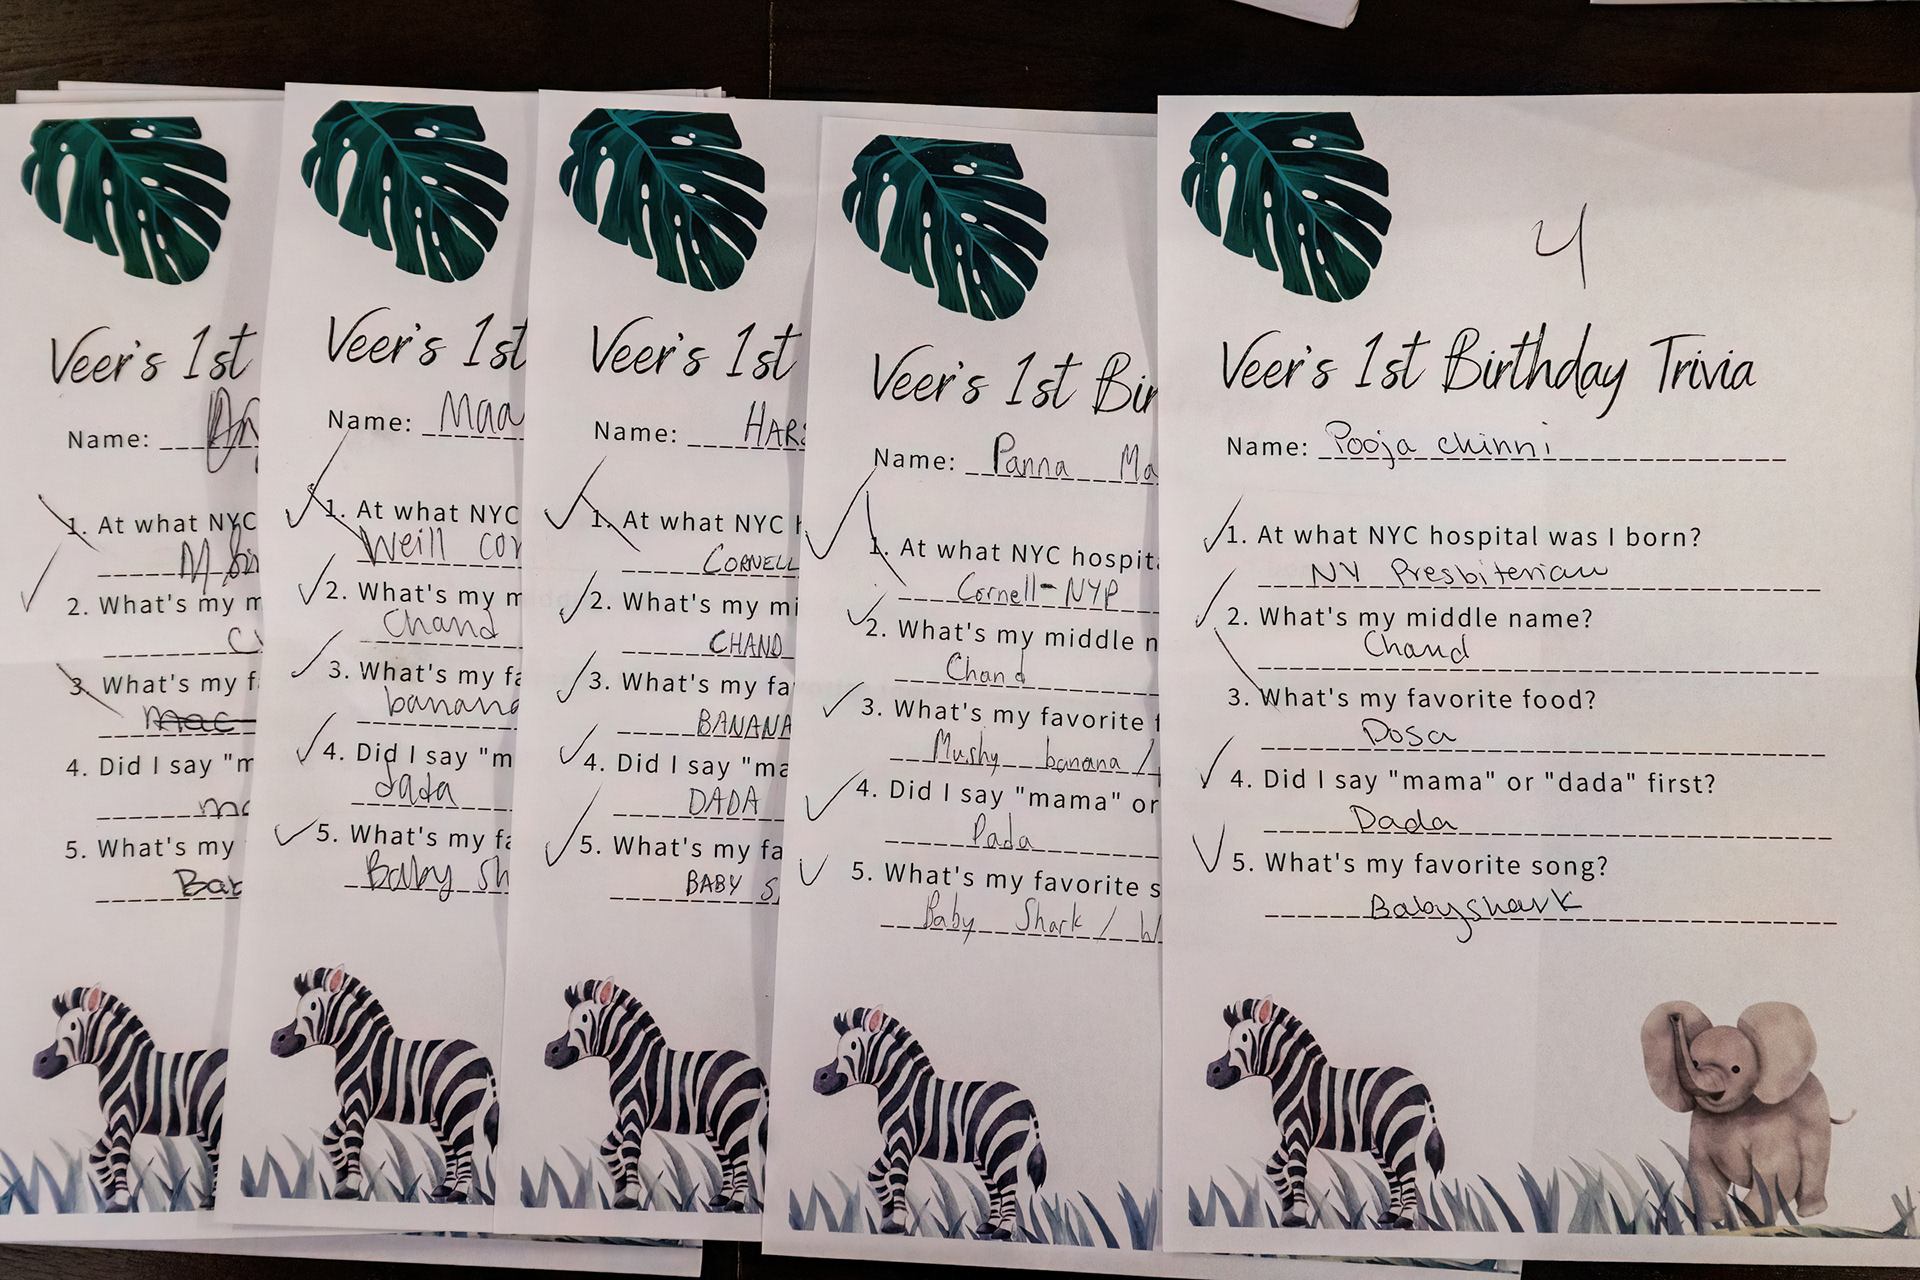 Veer's 1st
Name:
1. At what NYC
2. What's my m
3. What's my f
mac
4. Did I say "m
5. What's my
Veer's 1st
Name: Maa
1. At what NYC
Weill cor
2. What's my m
Chand
3. What's my fa
banana
4. Did I say "m
dada
5. What's my fa
Baby sh
Veer's 1st
Name: HARS
1. At what NYC h
CORNELL
2. What's my mi
CHAND
3. What's my fa
BANANA
4. Did I say "ma
DADA
5. What's my fa
BABY S
Veer's 1st Bir
Name: Panna Ma
1. At what NYC hospit
Cornell-NYP
2. What's my middle n
Chand
3. What's my favorite f
Mushy banana /
4. Did I say "mama" or
Dada
5. What's my favorite s
Baby Shark / W
4
Veer's 1st Birthday Trivia
Name: Pooja Chinni
1. At what NYC hospital was I born?
NY Presbiterian
2. What's my middle name?
Chand
3. What's my favorite food?
Dosa
4. Did I say "mama" or "dada" first?
Dada
5. What's my favorite song?
Babyshark